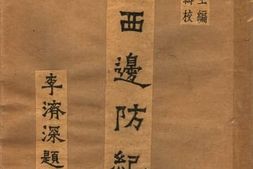 編
輯校
西邊防紀
李濟深題